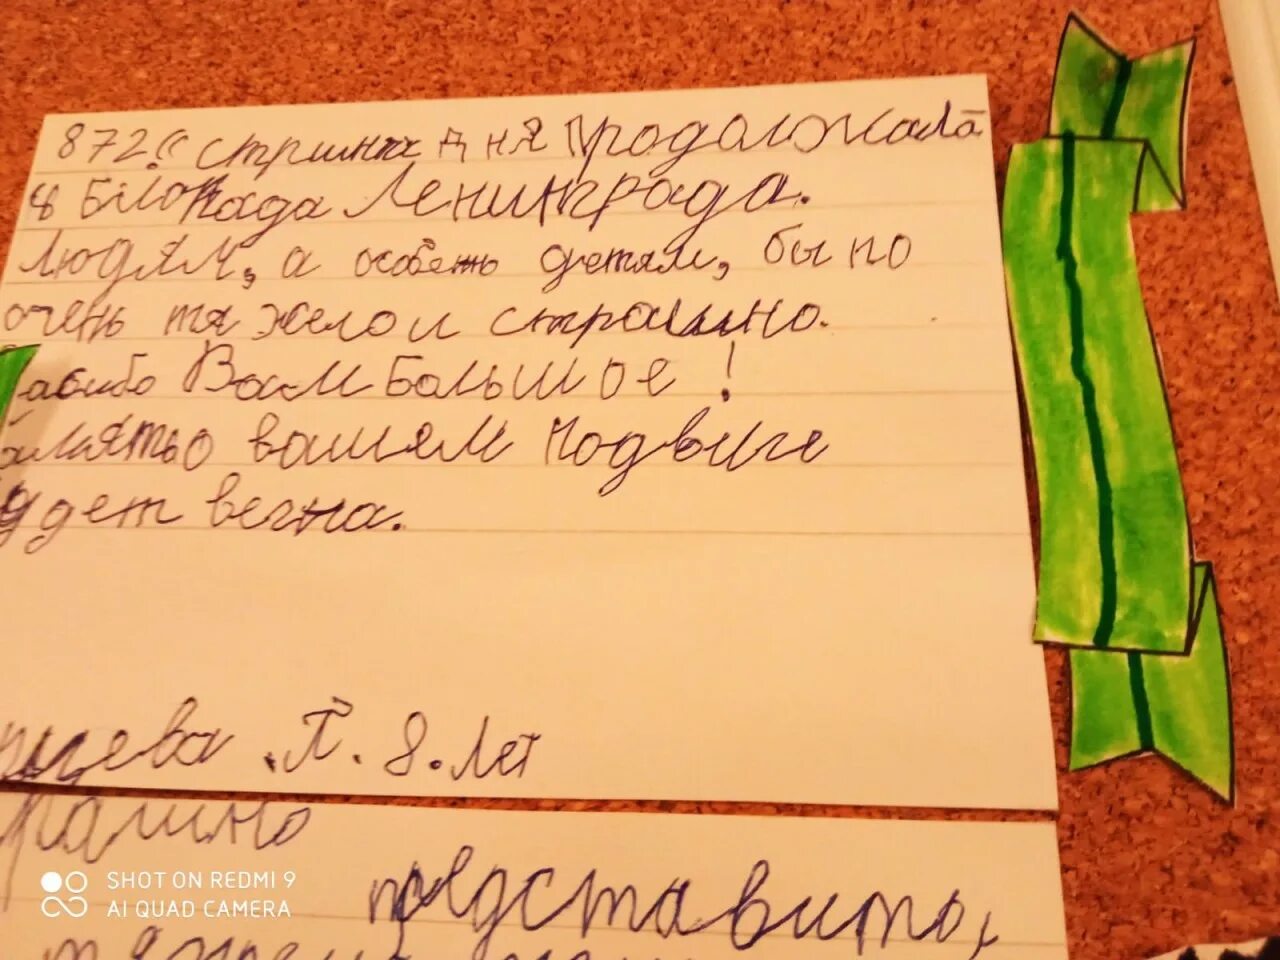 872 стришнх дня продолжала
я Блокада Ленинграда.
Людям, а особень детям, было
очень тяжело и страшно.
асибо Вам Большое!
амятьо вашем подвиге
удет вечна.
рцева .П. 8. лет
рашно
представить,
SHOT ON REDMI 9
AI QUAD CAMERA